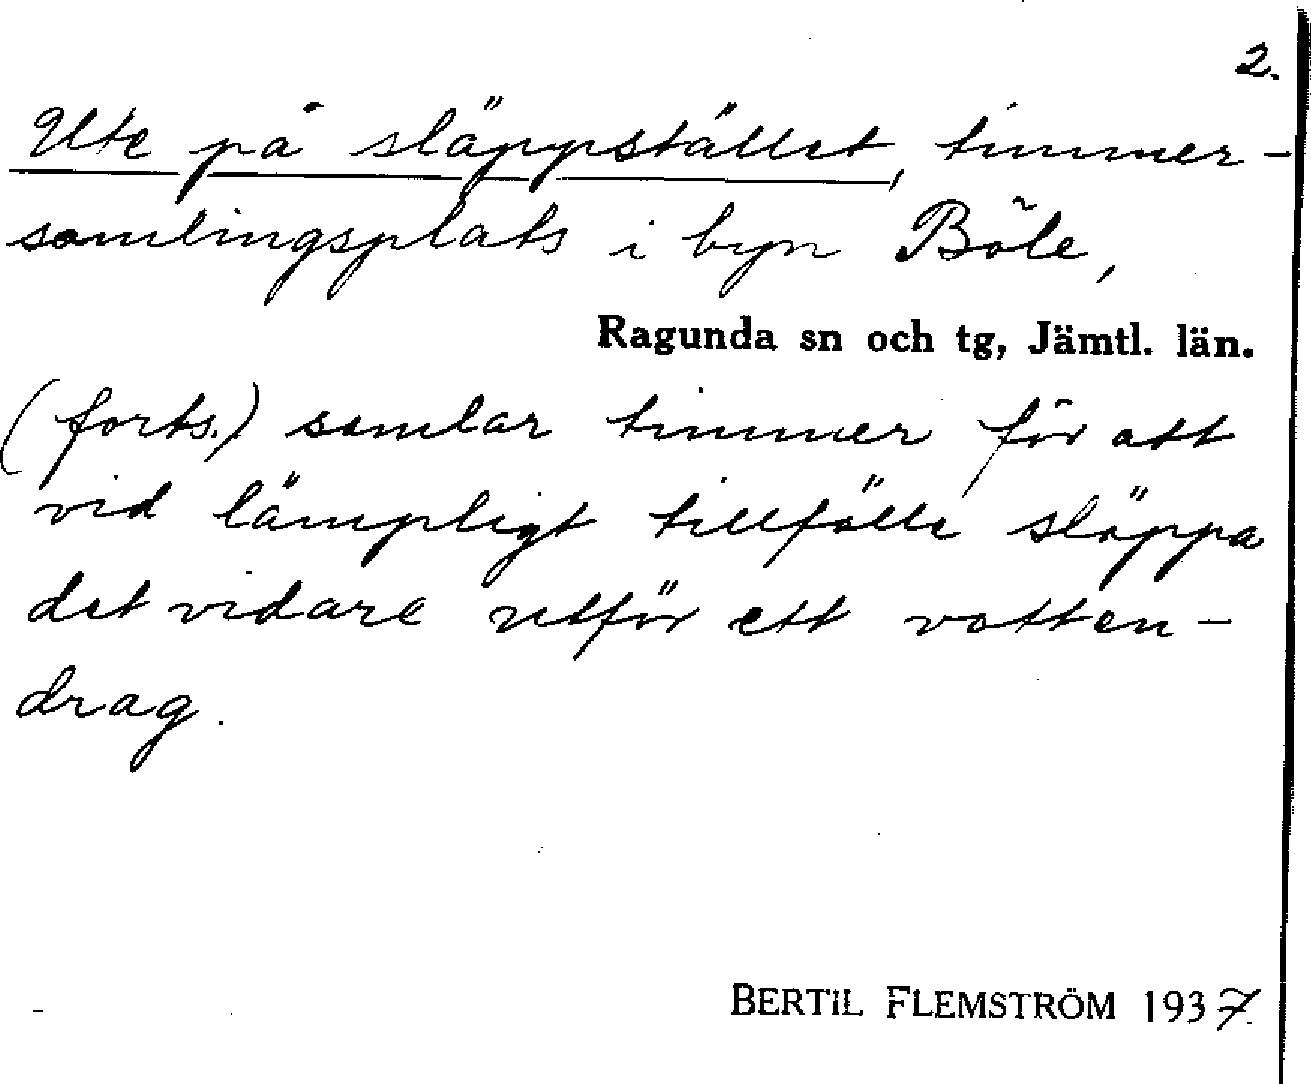 2.
Ute på släppstället, timmer-
samlingsplats i byn Böle,
Ragunda sn och tg, Jämtl. län.
(forts.) samlar timmer för att
vid lämpligt tillfälle släppa
det vidare utför ett vatten-
drag.
BERTIL FLEMSTRÖM 1937